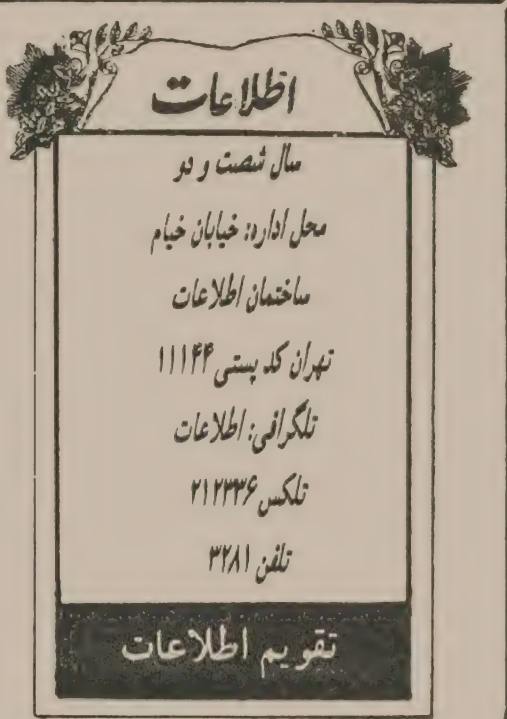 اطلاعات
سال شصت و دو
محل اداره: خیابان خیام
ساختمان اطلاعات
تهران کد پستی ۱۱۱۴۴
تلگرافی: اطلاعات
تلکس ۲۱۲۳۳۶
تلفن ۳۲۸۱
تقویم اطلاعات